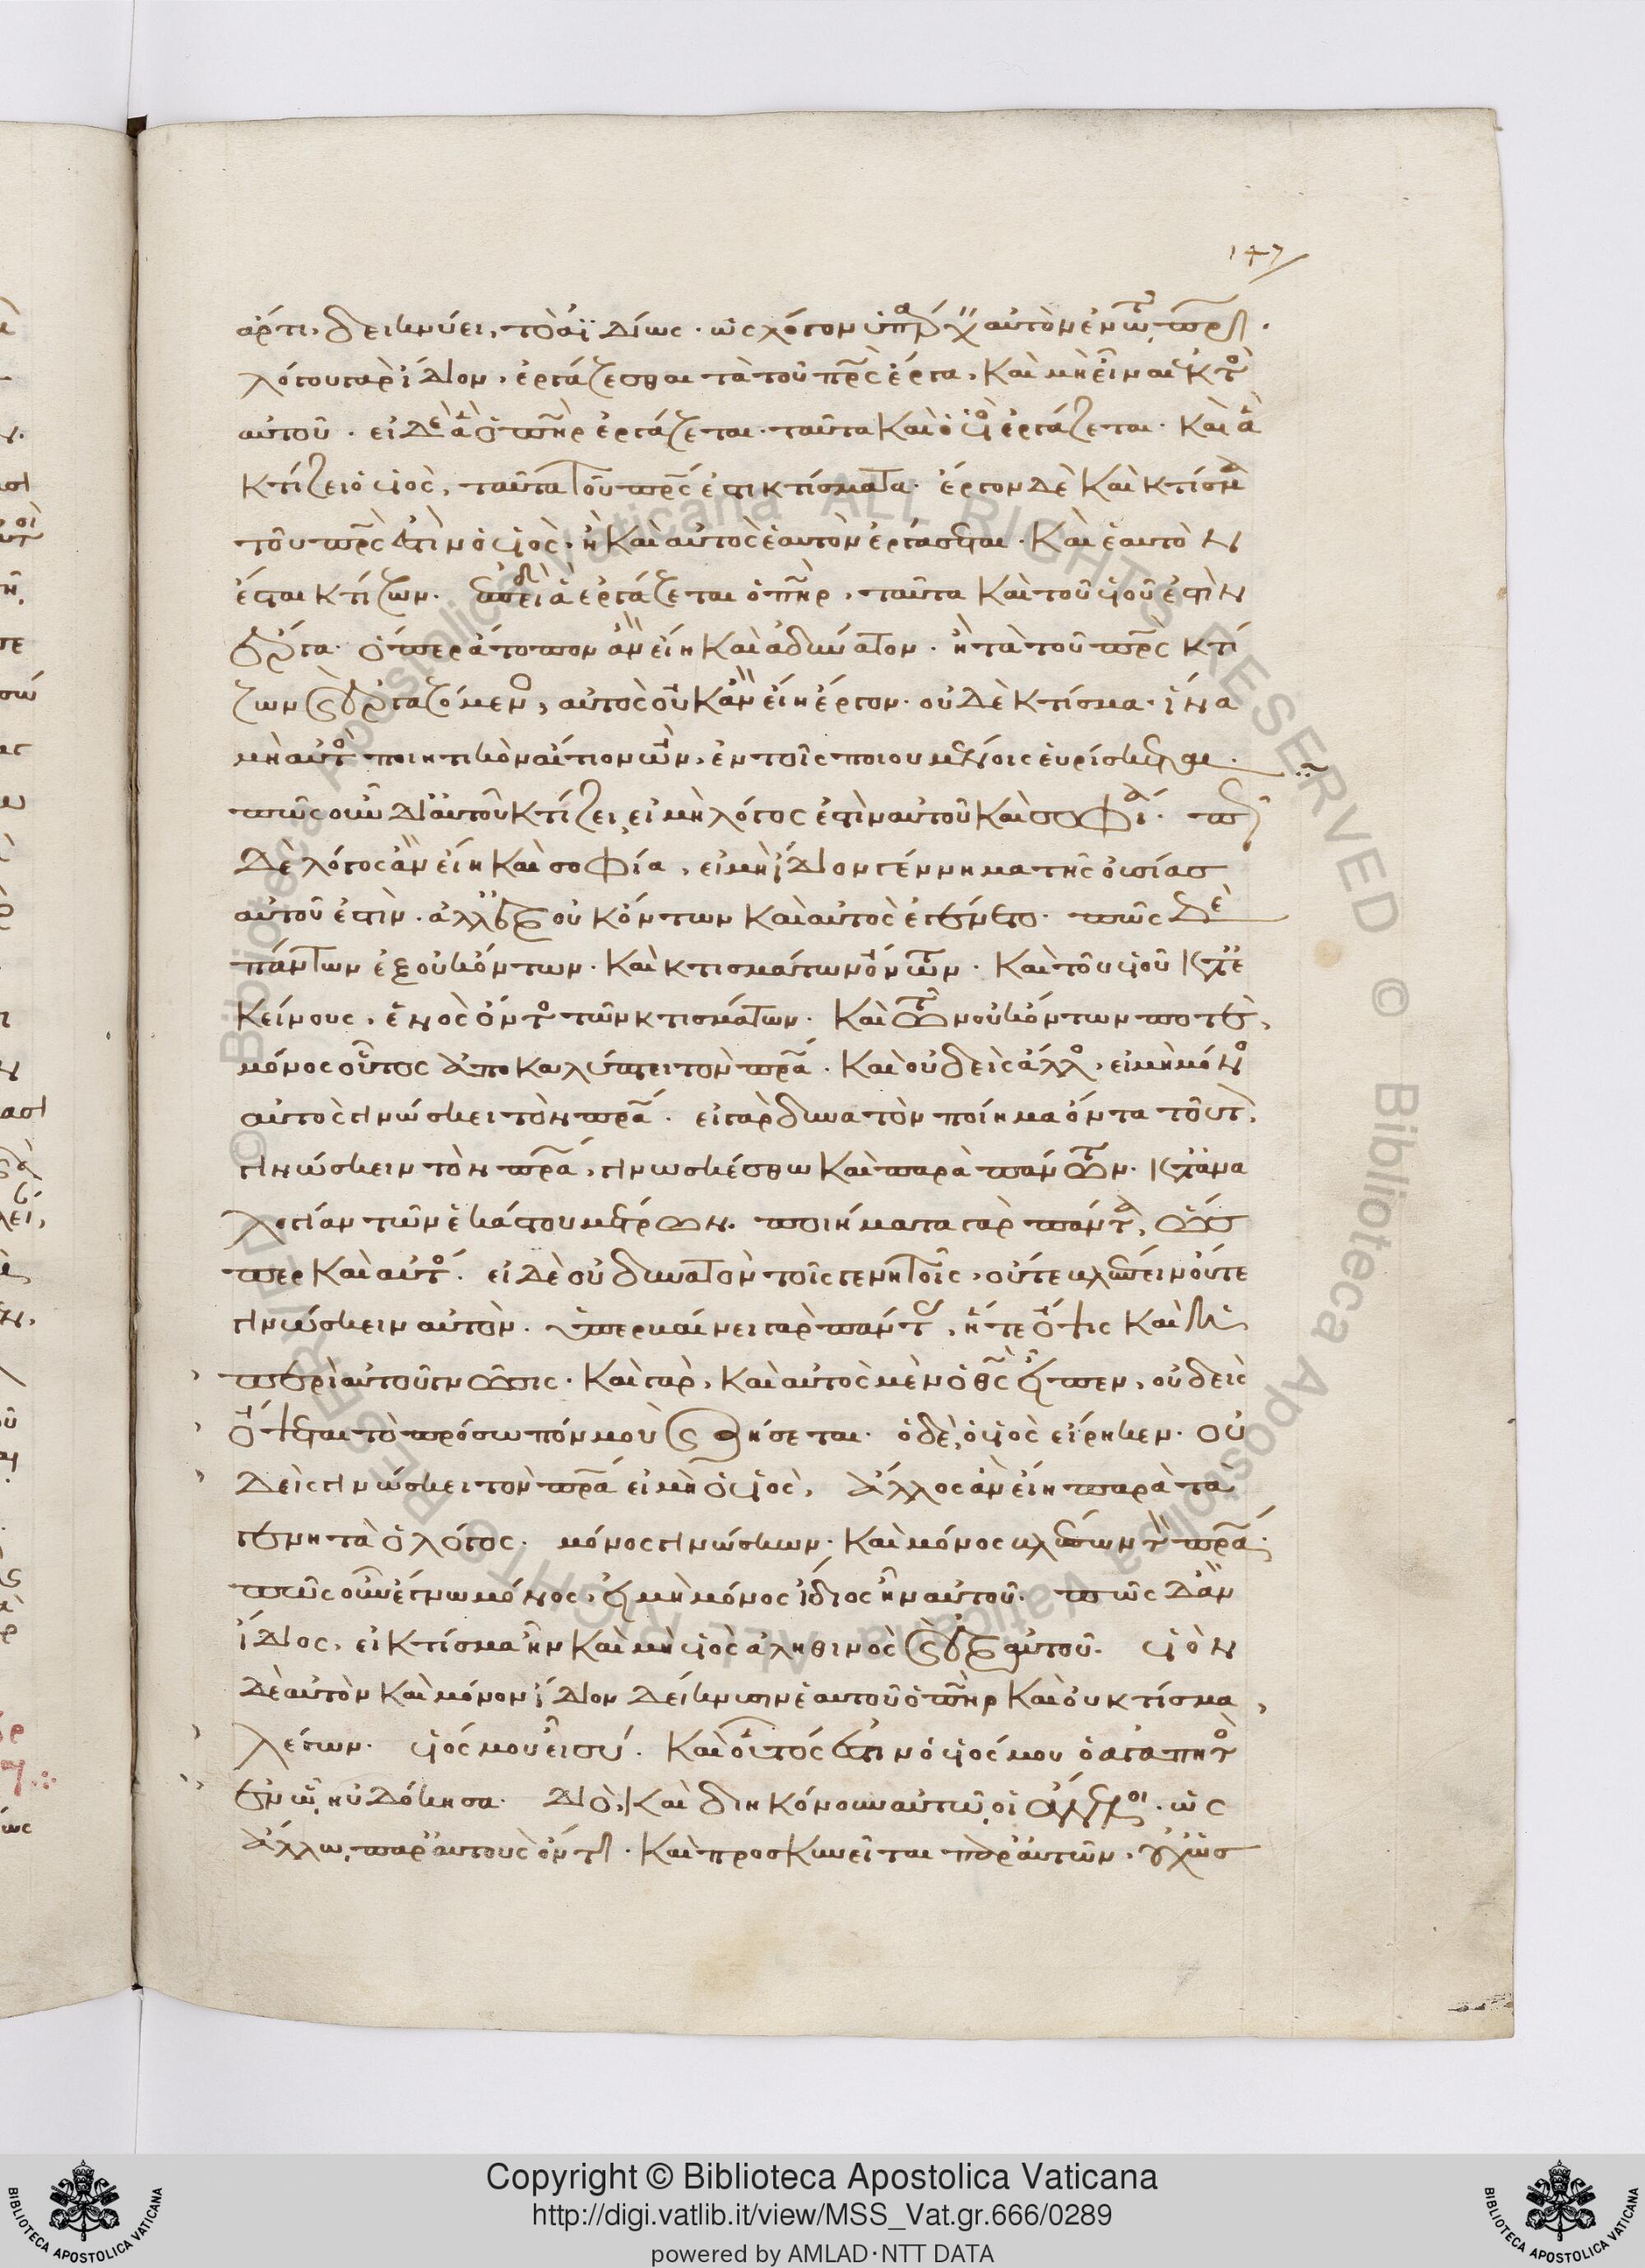 147
ἄρτι, δεικνύει, τὸ ἀϊδίως. ὡς λόγον ὑπάρχειν αὐτὸν ἐν τῷ πρι.
λόγου γὰρ ἴδιον, ἐργάζεσθαι τὰ τοῦ πρς ἔργα, καὶ μὴ εἶναι ἐκτὸς
αὐτοῦ. εἰ δὲ ἃ ὁ πηρ ἐργάζεται. ταῦτα καὶ ὁ υἱὸς ἐργάζεται. καὶ ἃ
κτίζει ὁ υἱὸς, ταῦτα τοῦ πρς ἐστι κτίσματα. ἔργον δὲ καὶ κτίσμα
τοῦ πρς ἐστὶν ὁ υἱὸς, ἢ καὶ αὐτὸς ἑαυτὸν ἐργάσεται. καὶ ἑαυτὸν
ἔσται κτίζων. ἐπειδὴ ἃ ἐργάζεται ὁ πηρ, ταῦτα καὶ τοῦ υἱοῦ ἐστὶν
ἔργα. ὅπερ ἄτοπον ἂν εἴη καὶ ἀδύνατον. ἢ τὰ τοῦ πρς κτί
ζων καὶ ἐργαζόμενος, αὐτὸς οὐκ ἂν εἴη ἔργον. οὐδὲ κτίσμα. ἵνα
μὴ αὐτὸς ποιητικὸν αἴτιον ὢν, ἐν τοῖς ποιουμένοις εὑρίσκηται.
πῶς οὖν δι' αὐτοῦ κτίζει, εἰ μὴ λόγος ἐστὶν αὐτοῦ καὶ σοφία. πῶς
δὲ λόγος ἂν εἴη καὶ σοφία, εἰ μὴ ἴδιον γέννημα τῆς οὐσίας
αὐτοῦ ἐστιν. ἀλλ' ἐξ οὐκ ὄντων καὶ αὐτὸς ἐγένετο. πῶς δὲ
πάντων ἐξ οὐκ ὄντων. καὶ κτισμάτων ὄντων. καὶ τοῦ υἱοῦ κατ' ἐ
κείνους, ἑνὸς ὄντος τῶν κτισμάτων. καὶ τῶν οὐκ ὄντων ποτὲ,
μόνος οὗτος ἀποκαλύπτει τὸν πρα. καὶ οὐδεὶς ἄλλος, εἰ μὴ μόνος
αὐτὸς γινώσκει τὸν πρα. εἰ γὰρ δυνατὸν ποίημα ὄντα τοῦτον,
γινώσκειν τὸν πρα, γινωσκέσθω καὶ παρὰ πάντων. κατὰ ἀνα
λογίαν τῶν ἑκάστου μέτρων. ποιήματα γὰρ πάντα, ὥσ
περ καὶ αὐτός. εἰ δὲ οὐ δυνατὸν τοῖς γενητοῖς, οὔτε βλέπειν οὔτε
γινώσκειν αὐτὸν. ὑπερβαίνει γὰρ πάντας, ἥ τε ὄψις καὶ ἡ
περὶ αὐτοῦ γνῶσις. καὶ γὰρ, καὶ αὐτὸς μὲν ὁ θς εἶπεν, οὐδεὶς
ὄψεται τὸ πρόσωπόν μου καὶ ζήσεται. ὁ δὲ, ὁ υἱὸς εἴρηκεν. οὐ
δεὶς γινώσκει τὸν πρα εἰ μὴ ὁ υἱὸς, ἄλλος ἂν εἴη παρὰ τὰ
γενητὰ ὁ λόγος. μόνος γινώσκων. καὶ μόνος βλέπων τὸν πρα.
πῶς οὖν ἔγνω μόνος, εἰ μὴ μόνος ἴδιος ἦν αὐτοῦ. πῶς δ' ἂν
ἴδιος, εἰ κτίσμα ἦν καὶ μὴ υἱὸς ἀληθινὸς καὶ ἐξ αὐτοῦ. υἱὸν
δὲ αὐτὸν καὶ μόνον ἴδιον δείκνυσιν ἑαυτοῦ ὁ πηρ καὶ οὐ κτίσμα,
λέγων. υἱός μου εἶ σύ. καὶ οὗτός ἐστιν ὁ υἱός μου ὁ ἀγαπητὸς
ἐν ᾧ ηὐδόκησα. διὸ, καὶ διηκόνουν αὐτῷ, οἱ ἄγγελοι. ὡς
ἄλλῳ παρ' αὐτοὺς ὄντι. καὶ προσκυνεῖται παρ' αὐτῶν, οὐχ ὡς
Copyright © Biblioteca Apostolica Vaticana
http://digi.vatlib.it/view/MSS_Vat.gr.666/0289
powered by AMLAD·NTT DATA
BIBLIOTECA APOSTOLICA VATICANA
BIBLIOTECA APOSTOLICA VATICANA